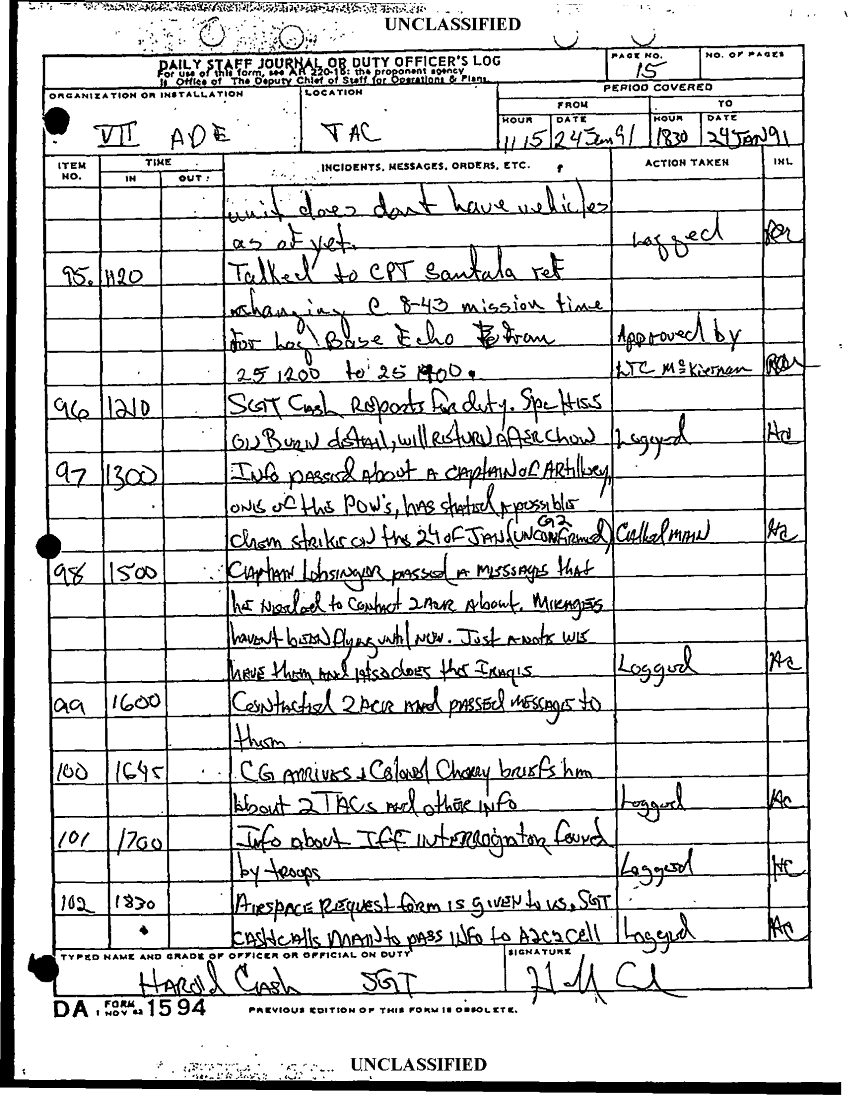 UNCLASSIFIED
DAILY STAFF JOURNAL OR DUTY OFFICER'S LOG
For use of this form, see AR 220-15; the proponent agency
is Office of The Deputy Chief of Staff for Operations & Plans.
PAGE NO.
15
NO. OF PAGES
ORGANIZATION OR INSTALLATION
VII ADE
LOCATION
TAC
PERIOD COVERED
FROM TO
HOUR DATE HOUR DATE
1115 24 Jan 91 1830 24 JAN 91
ITEM NO. TIME IN OUT INCIDENTS, MESSAGES, ORDERS, ETC. ACTION TAKEN INL
unit does dont have vehicles
as of yet. Logged
95. 1120 Talked to CPT Santala ref
changing C 8-43 mission time
for Log Base Echo from Approved by
25 1200 to 25 1400. LTC McKiernan
96 1210 SGT Cash Reports for duty. Spc Hiss
on Burn detail, will return after chow Logged HC
97 1300 Info passed about a Captain of Artillery,
one of the POW's, has stated a possible
G2
chem strike on the 24 of JAN (unconfirmed) Called MAIN HC
98 1500 Captain Lobsinger passed a message that
he needed to contact 2 ACR about. Mirages
havent been flying until now. Just a note we
have them and also does the Iraqis Logged HC
99 1600 Contacted 2 ACR and passed message to
them
100 1645 CG arrives & Colonel Cherry briefs him
about 2 TACs and other info Logged HC
101 1700 Info about IFF interrogator found
by troops Logged HC
102 1830 Airspace Request form is given to us, SGT
Cash calls MAIN to pass info to A2C2 Cell Logged HC
TYPED NAME AND GRADE OF OFFICER OR OFFICIAL ON DUTY
Harold Cash SGT
SIGNATURE
DA FORM 1 NOV 62 1594
PREVIOUS EDITION OF THIS FORM IS OBSOLETE.
UNCLASSIFIED